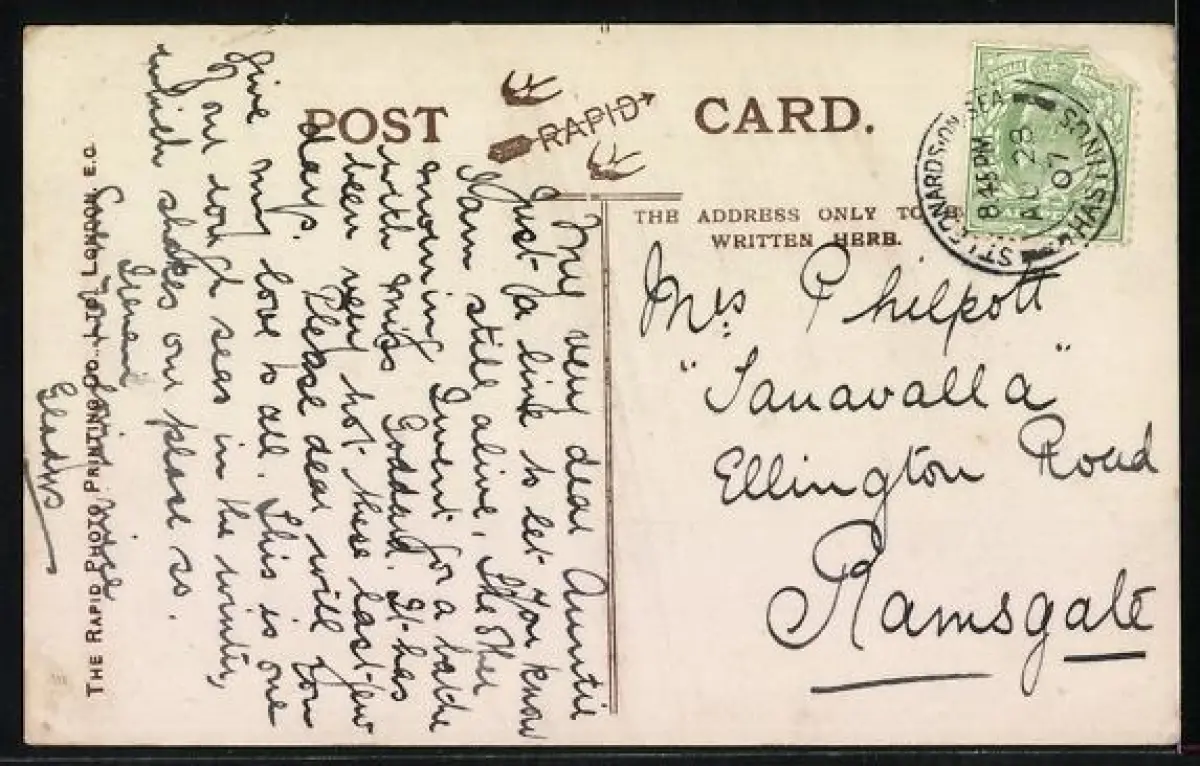 POST CARD.
RAPID
THE ADDRESS ONLY TO BE
WRITTEN HERE.
ST LEONARDS ON SEA
HASTINGS
8.45 PM
AU 28
07
Mrs Philpott
"Sanavalla"
Ellington Road
Ramsgate
My very dear Auntie
Just a line to let you know
I am still alive, the other
morning I went for a bathe
with miss Goddard. It has
been very hot these last few
days. Please dear will you
give my love to all. This is one
of our rough seas in the winter,
which shakes our place so.
friend
Gladys
THE RAPID PHOTO PRINTING CO., LTD LONDON, E.C.